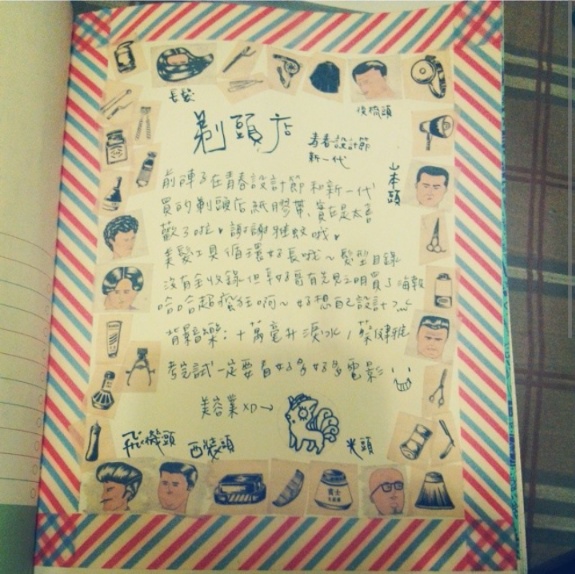 長髮
後梳頭
剃頭店
青春設計節
新一代
山本頭
前陣子在青春設計節和新一代
買的剃頭店紙膠帶,實在是太喜
歡了啦♥謝謝雅蚊哦♥
美髮工具循環好長哦~髮型目錄
沒有全收錄但幸好有先見之明買了
哈哈超瘋狂啊~好想自己設計
背景音樂:十萬毫升淚水/蔡健雅
考完試一定要看好多好多電影
美容業XD→
飛機頭
西裝頭
光頭